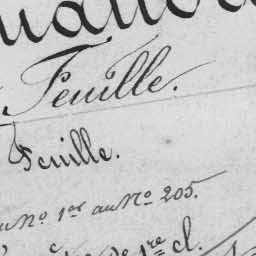 Feuille.
Feuille.
au No. 1er au No. 205.
1re cl.